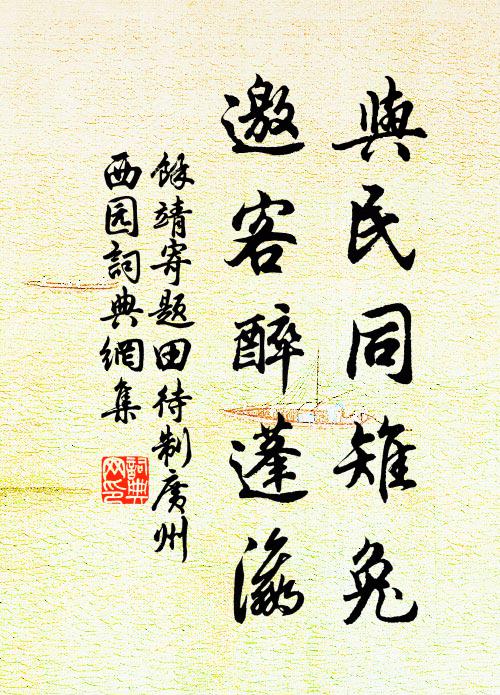 與民同雉兔
邀客醉蓬瀛
餘靖寄题田待制廣州
西园詞典網集
詞典
网印